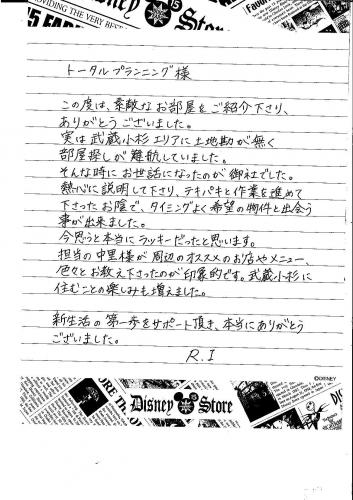 PROVIDING THE VERY BEST
Disney
Store
トータルプランニング様
この度は、素敵なお部屋をご紹介下さり、
ありがとうございました。
実は武蔵小杉エリアに土地勘が無く
部屋探しが難航していました。
そんな時にお世話になったのが御社でした。
熱心に説明して下さり、テキパキと作業を進めて
下さったお陰で、タイミングよく希望の物件と出会う
事が出来ました。
今思うと本当にラッキーだったと思います。
担当の中里様が周辺のオススメのお店やメニュー、
色々とお教え下さったのが印象的です。武蔵小杉に
住むことの楽しみも増えました。
新生活の第一歩をサポート頂き、本当にありがとう
ございました。
R.I
©DISNEY
Disney Store